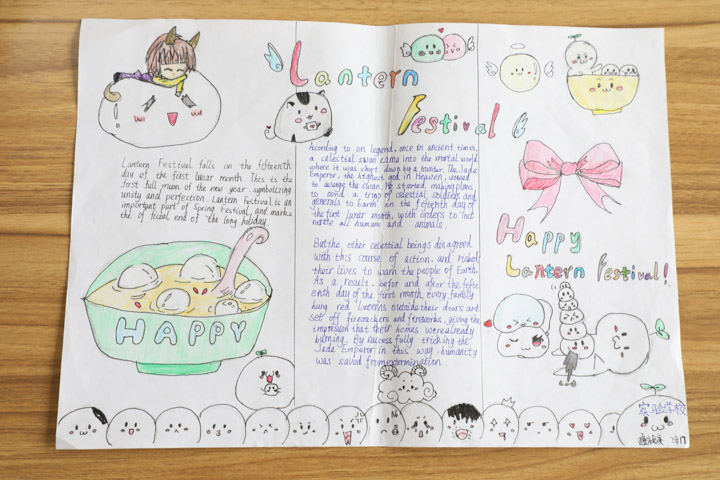 Lantern
Festival
Lantern Festival falls on the fifteenth
day of the first lunar month. This is the
first full moon of the new year. symbolizing
unity and perfection. Lantern Festival is an
important part of Spring Festival, and mark
the of ficial end of the long holiday.
HAPPY
Acording to on legend, once in ancient times,
a celestial swan came into the mortal world
where it was short down by a hunter. The Jade
Emperor, the highest god in Heaven, vowed
to avange the swan. He started making plans
to send a troop of celestial soldiers and
generals to Earth on the fifteenth day of
the first lunar month, with orders to inci
nerate all humans and animals.
But the other celestial beings disagreed
with this course of action. and risked
their lives to warn the people of Earth.
As a result. befor and after the fifte
enth day of the first month, every family
hung red lanterns outside their doors and
set off firecrackers and fireworks, giving the
impression that their homes were already
burning. By success fully tricking the
Jade Emperor in this way. humanity
was saved from extermination.
Happy
Lantern Festival!
实验学校